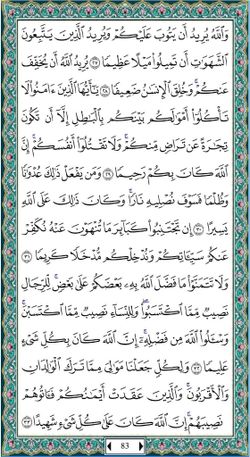 وَٱللَّهُ يُرِيدُ أَن يَتُوبَ عَلَيۡكُمۡ وَيُرِيدُ ٱلَّذِينَ يَتَّبِعُونَ
ٱلشَّهَوَٰتِ أَن تَمِيلُواْ مَيۡلًا عَظِيمٗا ٢٧ يُرِيدُ ٱللَّهُ أَن يُخَفِّفَ
عَنكُمۡۚ وَخُلِقَ ٱلۡإِنسَٰنُ ضَعِيفٗا ٢٨ يَٰٓأَيُّهَا ٱلَّذِينَ ءَامَنُواْ لَا
تَأۡكُلُوٓاْ أَمۡوَٰلَكُم بَيۡنَكُم بِٱلۡبَٰطِلِ إِلَّآ أَن تَكُونَ
تِجَٰرَةً عَن تَرَاضٖ مِّنكُمۡۚ وَلَا تَقۡتُلُوٓاْ أَنفُسَكُمۡۚ إِنَّ
ٱللَّهَ كَانَ بِكُمۡ رَحِيمٗا ٢٩ وَمَن يَفۡعَلۡ ذَٰلِكَ عُدۡوَٰنٗا
وَظُلۡمٗا فَسَوۡفَ نُصۡلِيهِ نَارٗاۚ وَكَانَ ذَٰلِكَ عَلَى ٱللَّهِ
يَسِيرًا ٣٠ إِن تَجۡتَنِبُواْ كَبَآئِرَ مَا تُنۡهَوۡنَ عَنۡهُ نُكَفِّرۡ
عَنكُمۡ سَيِّـَٔاتِكُمۡ وَنُدۡخِلۡكُم مُّدۡخَلٗا كَرِيمٗا ٣١
وَلَا تَتَمَنَّوۡاْ مَا فَضَّلَ ٱللَّهُ بِهِۦ بَعۡضَكُمۡ عَلَىٰ بَعۡضٖۚ لِّلرِّجَالِ
نَصِيبٞ مِّمَّا ٱكۡتَسَبُواْۖ وَلِلنِّسَآءِ نَصِيبٞ مِّمَّا ٱكۡتَسَبۡنَۚ
وَسۡـَٔلُواْ ٱللَّهَ مِن فَضۡلِهِۦٓۚ إِنَّ ٱللَّهَ كَانَ بِكُلِّ شَيۡءٍ
عَلِيمٗا ٣٢ وَلِكُلّٖ جَعَلۡنَا مَوَٰلِيَ مِمَّا تَرَكَ ٱلۡوَٰلِدَانِ
وَٱلۡأَقۡرَبُونَۚ وَٱلَّذِينَ عَقَدَتۡ أَيۡمَٰنُكُمۡ فَـَٔاتُوهُمۡ
نَصِيبَهُمۡۚ إِنَّ ٱللَّهَ كَانَ عَلَىٰ كُلِّ شَيۡءٖ شَهِيدًا ٣٣
83